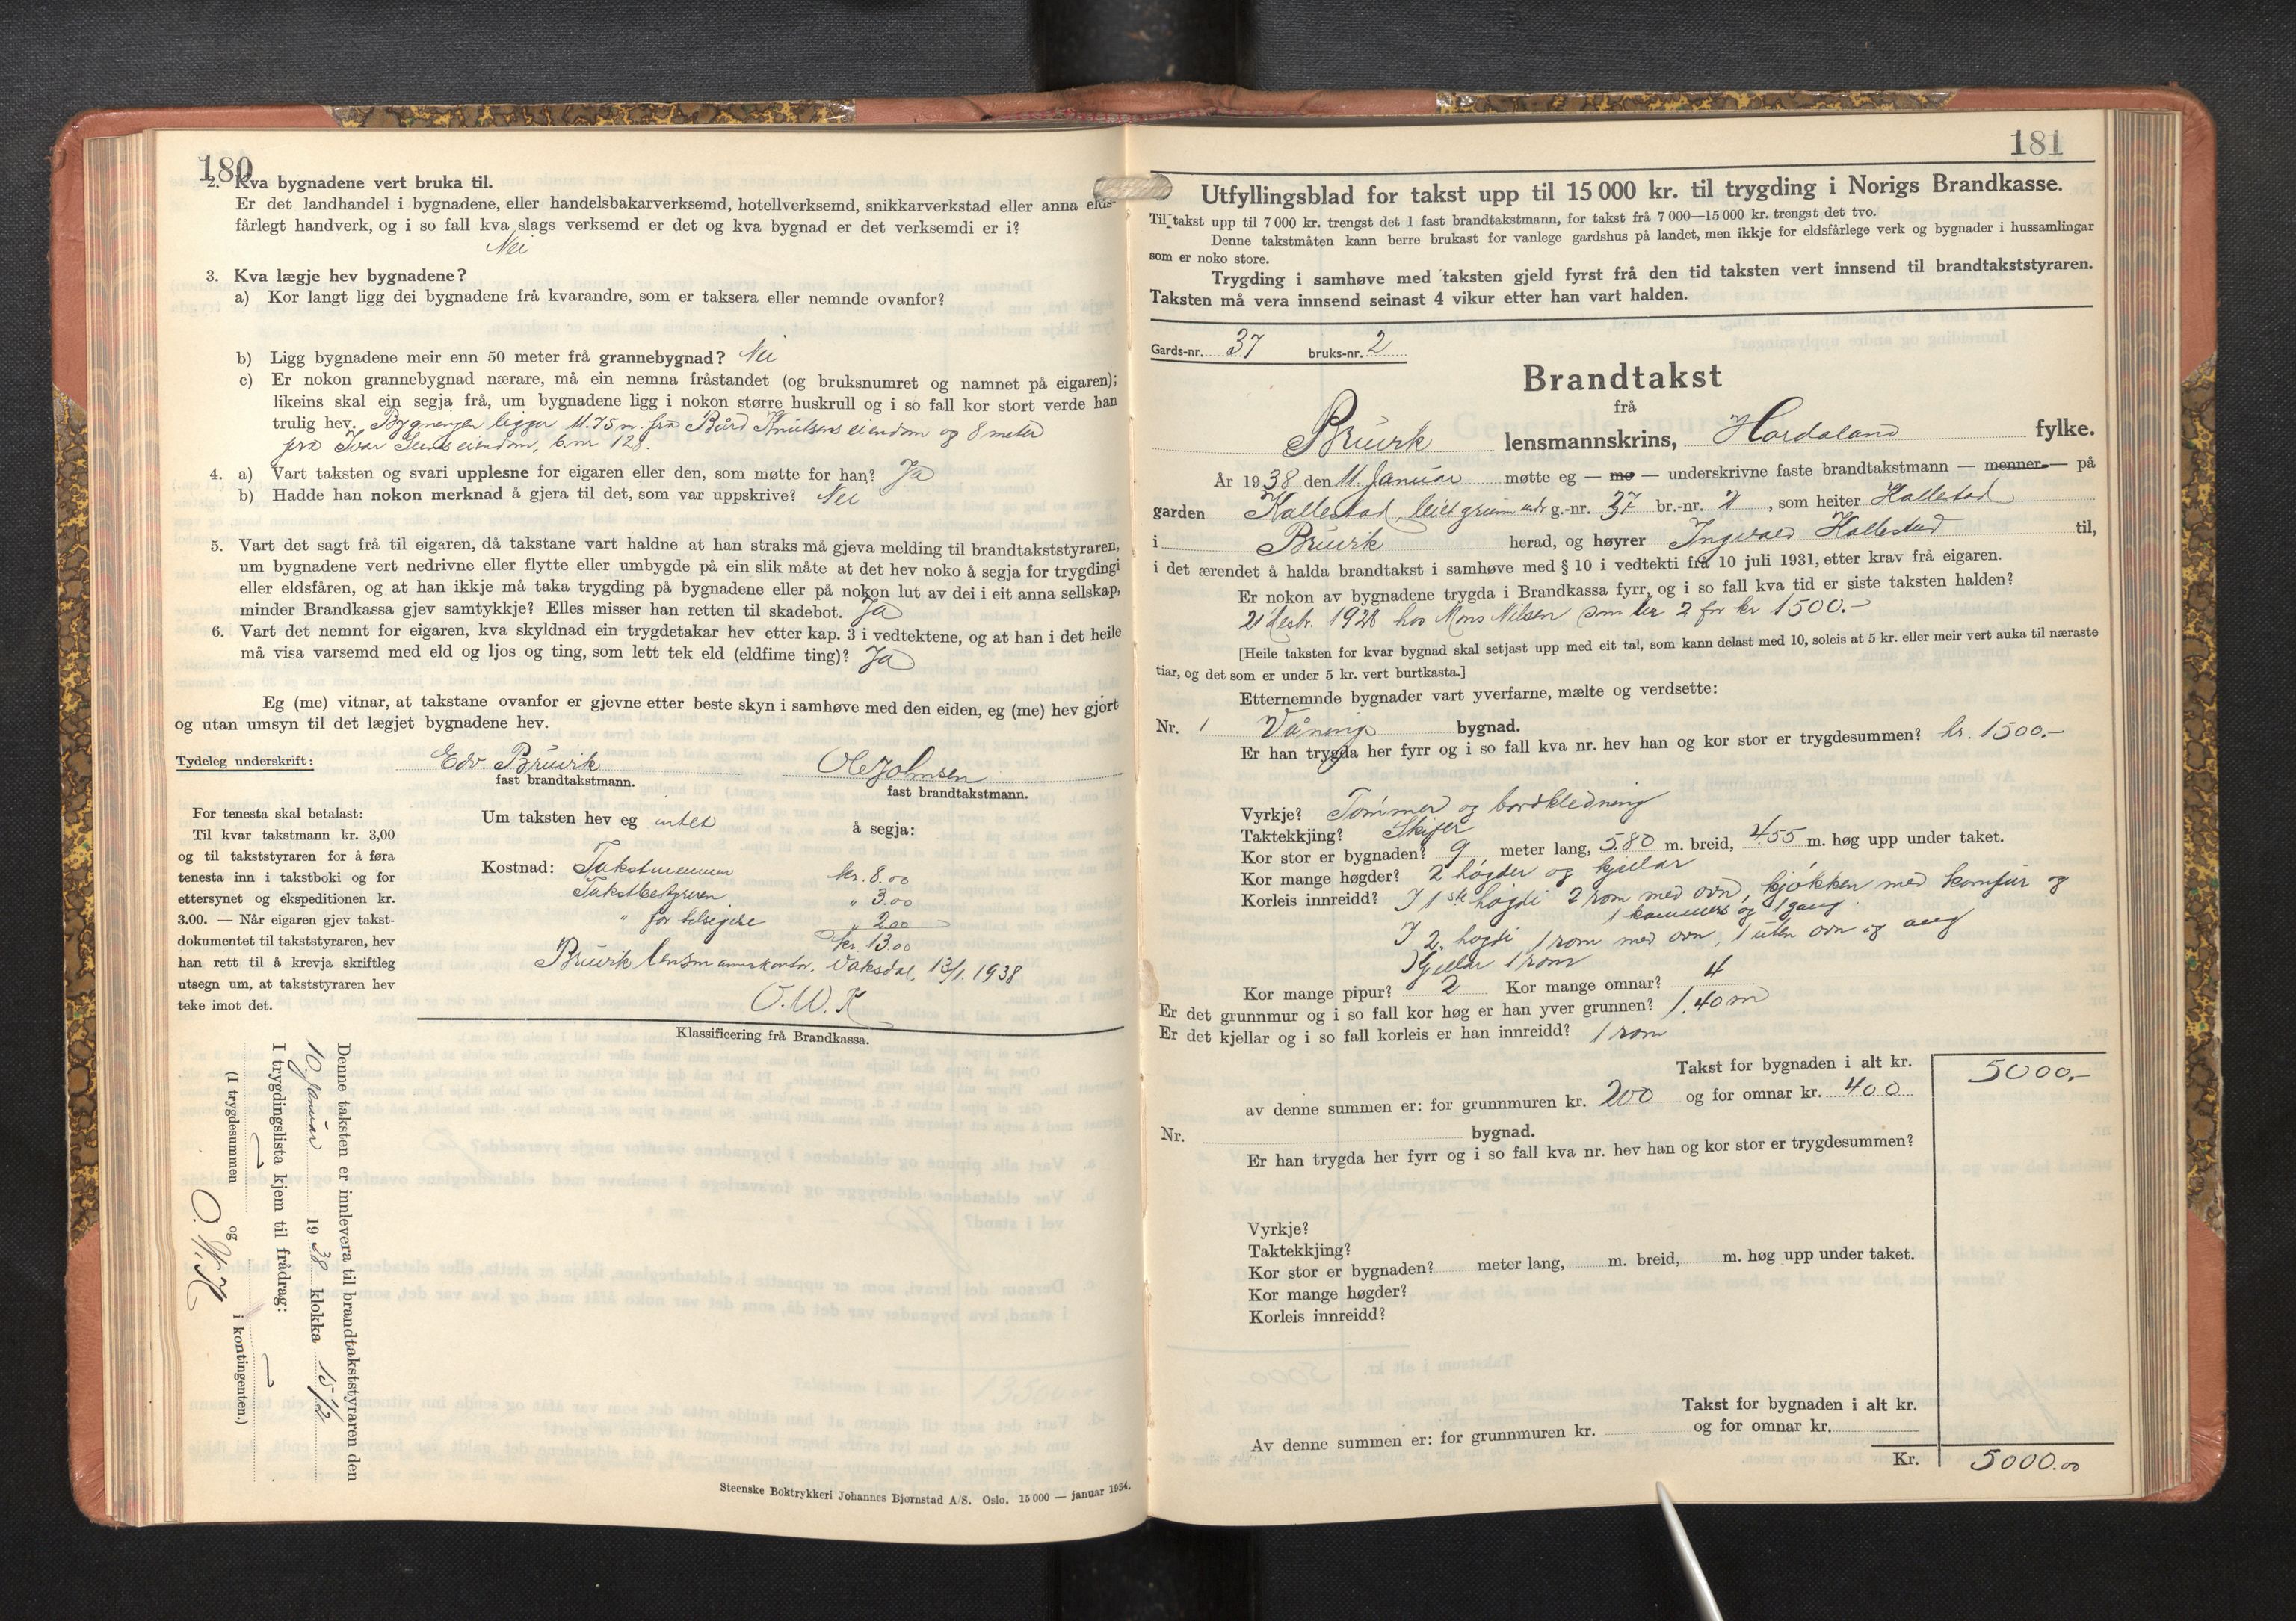 180
2. Kva bygnadene vert bruka til.
Er det landhandel i bygnadene, eller handelsbakarverksemd, hotellverksemd, snikkarverkstad eller anna elds-
fårlegt handverk, og i so fall kva slags verksemd er det og kva bygnad er det verksemdi er i?
Nei
3. Kva lægje hev bygnadene?
a) Kor langt ligg dei bygnadene frå kvarandre, som er taksera eller nemnde ovanfor?
b) Ligg bygnadene meir enn 50 meter frå grannebygnad? Nei
c) Er nokon grannebygnad nærare, må ein nemna fråstandet (og bruksnumret og namnet på eigaren);
likeins skal ein segja frå, um bygnadene ligg i nokon større huskrull og i so fall kor stort verde han
trulig hev. Bygningen ligger 11.75 m. fra Bård Knutsens eiendom og 8 meter
fra Ivar eiendom, b.nr 128.
4. a) Vart taksten og svari upplesne for eigaren eller den, som møtte for han? Ja
b) Hadde han nokon merknad å gjera til det, som var uppskrive? Nei
5. Vart det sagt frå til eigaren, då takstane vart haldne at han straks må gjeva melding til brandtakststyraren,
um bygnadene vert nedrivne eller flytte eller umbygde på ein slik måte at det hev noko å segja for trygdingi
eller eldsfåren, og at han ikkje må taka trygding på bygnadene eller på nokon lut av dei i eit anna sellskap,
minder Brandkassa gjev samtykkje? Elles misser han retten til skadebot. Ja
6. Vart det nemnt for eigaren, kva skyldnad ein trygdetakar hev etter kap. 3 i vedtektene, og at han i det heile
må visa varsemd med eld og ljos og ting, som lett tek eld (eldfime ting)? Ja
Eg (me) vitnar, at takstane ovanfor er gjevne etter beste skyn i samhøve med den eiden, eg (me) hev gjort
og utan umsyn til det lægjet bygnadene hev.
Tydeleg underskrift: Edv. Bruvik Ole Johnsen
fast brandtakstmann. fast brandtakstmann.
For tenesta skal betalast:
Til kvar takstmann kr. 3,00
og til takststyraren for å føra
tenesta inn i takstboki og for
ettersynet og ekspeditionen kr.
3.00. — Når eigaren gjev takst-
dokumentet til takststyraren, hev
han rett til å krevja skriftleg
utsegn um, at takststyraren hev
teke imot det.
Um taksten hev eg intet å segja:
Kostnad: Takstmennene kr. 8.00
Takstbestyreren " 3.00
" for bilegg " 2.00
kr. 13.00
Bruvik lensmannskontor, Vaksdal, 13/1. 1938
O. W. K
Klassificering frå Brandkassa.
Denne taksten er innlevera til brandtakststyraren den
10. januar 1938 klokka 15 1/2
I trygdingslista kjem til frådrag:
(I trygdesummen og i kontingenten.)
O. W. K
Steenske Boktrykkeri Johannes Bjørnstad A/S. Oslo. 15 000 — januar 1934.
181
Utfyllingsblad for takst upp til 15 000 kr. til trygding i Norigs Brandkasse.
Til takst upp til 7 000 kr. trengst det 1 fast brandtakstmann, for takst frå 7 000—15 000 kr. trengst det tvo.
Denne takstmåten kann berre brukast for vanlege gardshus på landet, men ikkje for eldsfårlege verk og bygnader i hussamlingar
som er noko store.
Trygding i samhøve med taksten gjeld fyrst frå den tid taksten vert innsend til brandtakststyraren.
Taksten må vera innsend seinast 4 vikur etter han vart halden.
Gards-nr. 37 bruks-nr. 2
Brandtakst
frå
Bruvik lensmannskrins, Hordaland fylke.
År 1938 den 11. Januar møtte eg — me — underskrivne faste brandtakstmann — menner — på
garden Hallestad, leiet grunn und. g.-nr. 37 br.-nr. 2, som heiter Hallestad
i Bruvik herad, og høyrer Ingvald Hallestad til,
i det ærendet å halda brandtakst i samhøve med § 10 i vedtekti frå 10 juli 1931, etter krav frå eigaren.
Er nokon av bygnadene trygda i Brandkassa fyrr, og i so fall kva tid er siste taksten halden?
21 desbr. 1928 hos Mons Nilsen som br 2 for kr 1500.-
[Heile taksten for kvar bygnad skal setjast upp med eit tal, som kann delast med 10, soleis at 5 kr. eller meir vert auka til næraste
tiar, og det som er under 5 kr. vert burtkasta.]
Etternemnde bygnader vart yverfarne, mælte og verdsette:
Nr. 1 Vånings bygnad.
Er han trygda her fyrr og i so fall kva nr. hev han og kor stor er trygdesummen? kr. 1500.-
Vyrkje? Tømmer og bordkledning
Taktekkjing? Skifer
Kor stor er bygnaden? 9 meter lang, 5.80 m. breid, 4.55 m. høg upp under taket.
Kor mange høgder? 2 høgder og kjellar
Korleis innreidd? I 1ste høgdi 2 rom med ovn, kjøkken med komfur og
1 kammers og 1 gang
I 2. høgdi 1 rom med ovn, 1 uten ovn og gang
Kjellar 1 rom
Kor mange pipur? 2 Kor mange omnar? 4
Er det grunnmur og i so fall kor høg er han yver grunnen? 1.40 m
Er det kjellar og i so fall korleis er han innreidd? 1 rom
Takst for bygnaden i alt kr. 5000.-
av denne summen er: for grunnmuren kr. 200 og for omnar kr. 400
Nr. bygnad.
Er han trygda her fyrr og i so fall kva nr. hev han og kor stor er trygdesummen?
Vyrkje?
Taktekkjing?
Kor stor er bygnaden? meter lang, m. breid, m. høg upp under taket.
Kor mange høgder?
Korleis innreidd?
Takst for bygnaden i alt kr.
Av denne summen er: for grunnmuren kr. og for omnar kr.
Kr. 5000.00